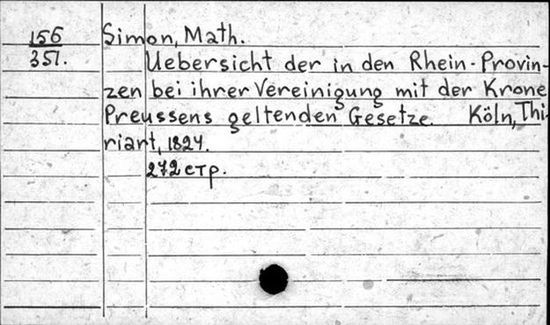 156 Simon, Math.
351. Uebersicht der in den Rhein-Provin-
zen bei ihrer Vereinigung mit der Krone
Preussens geltenden Gesetze. Köln, Thi-
riart, 1824.
272 стр.